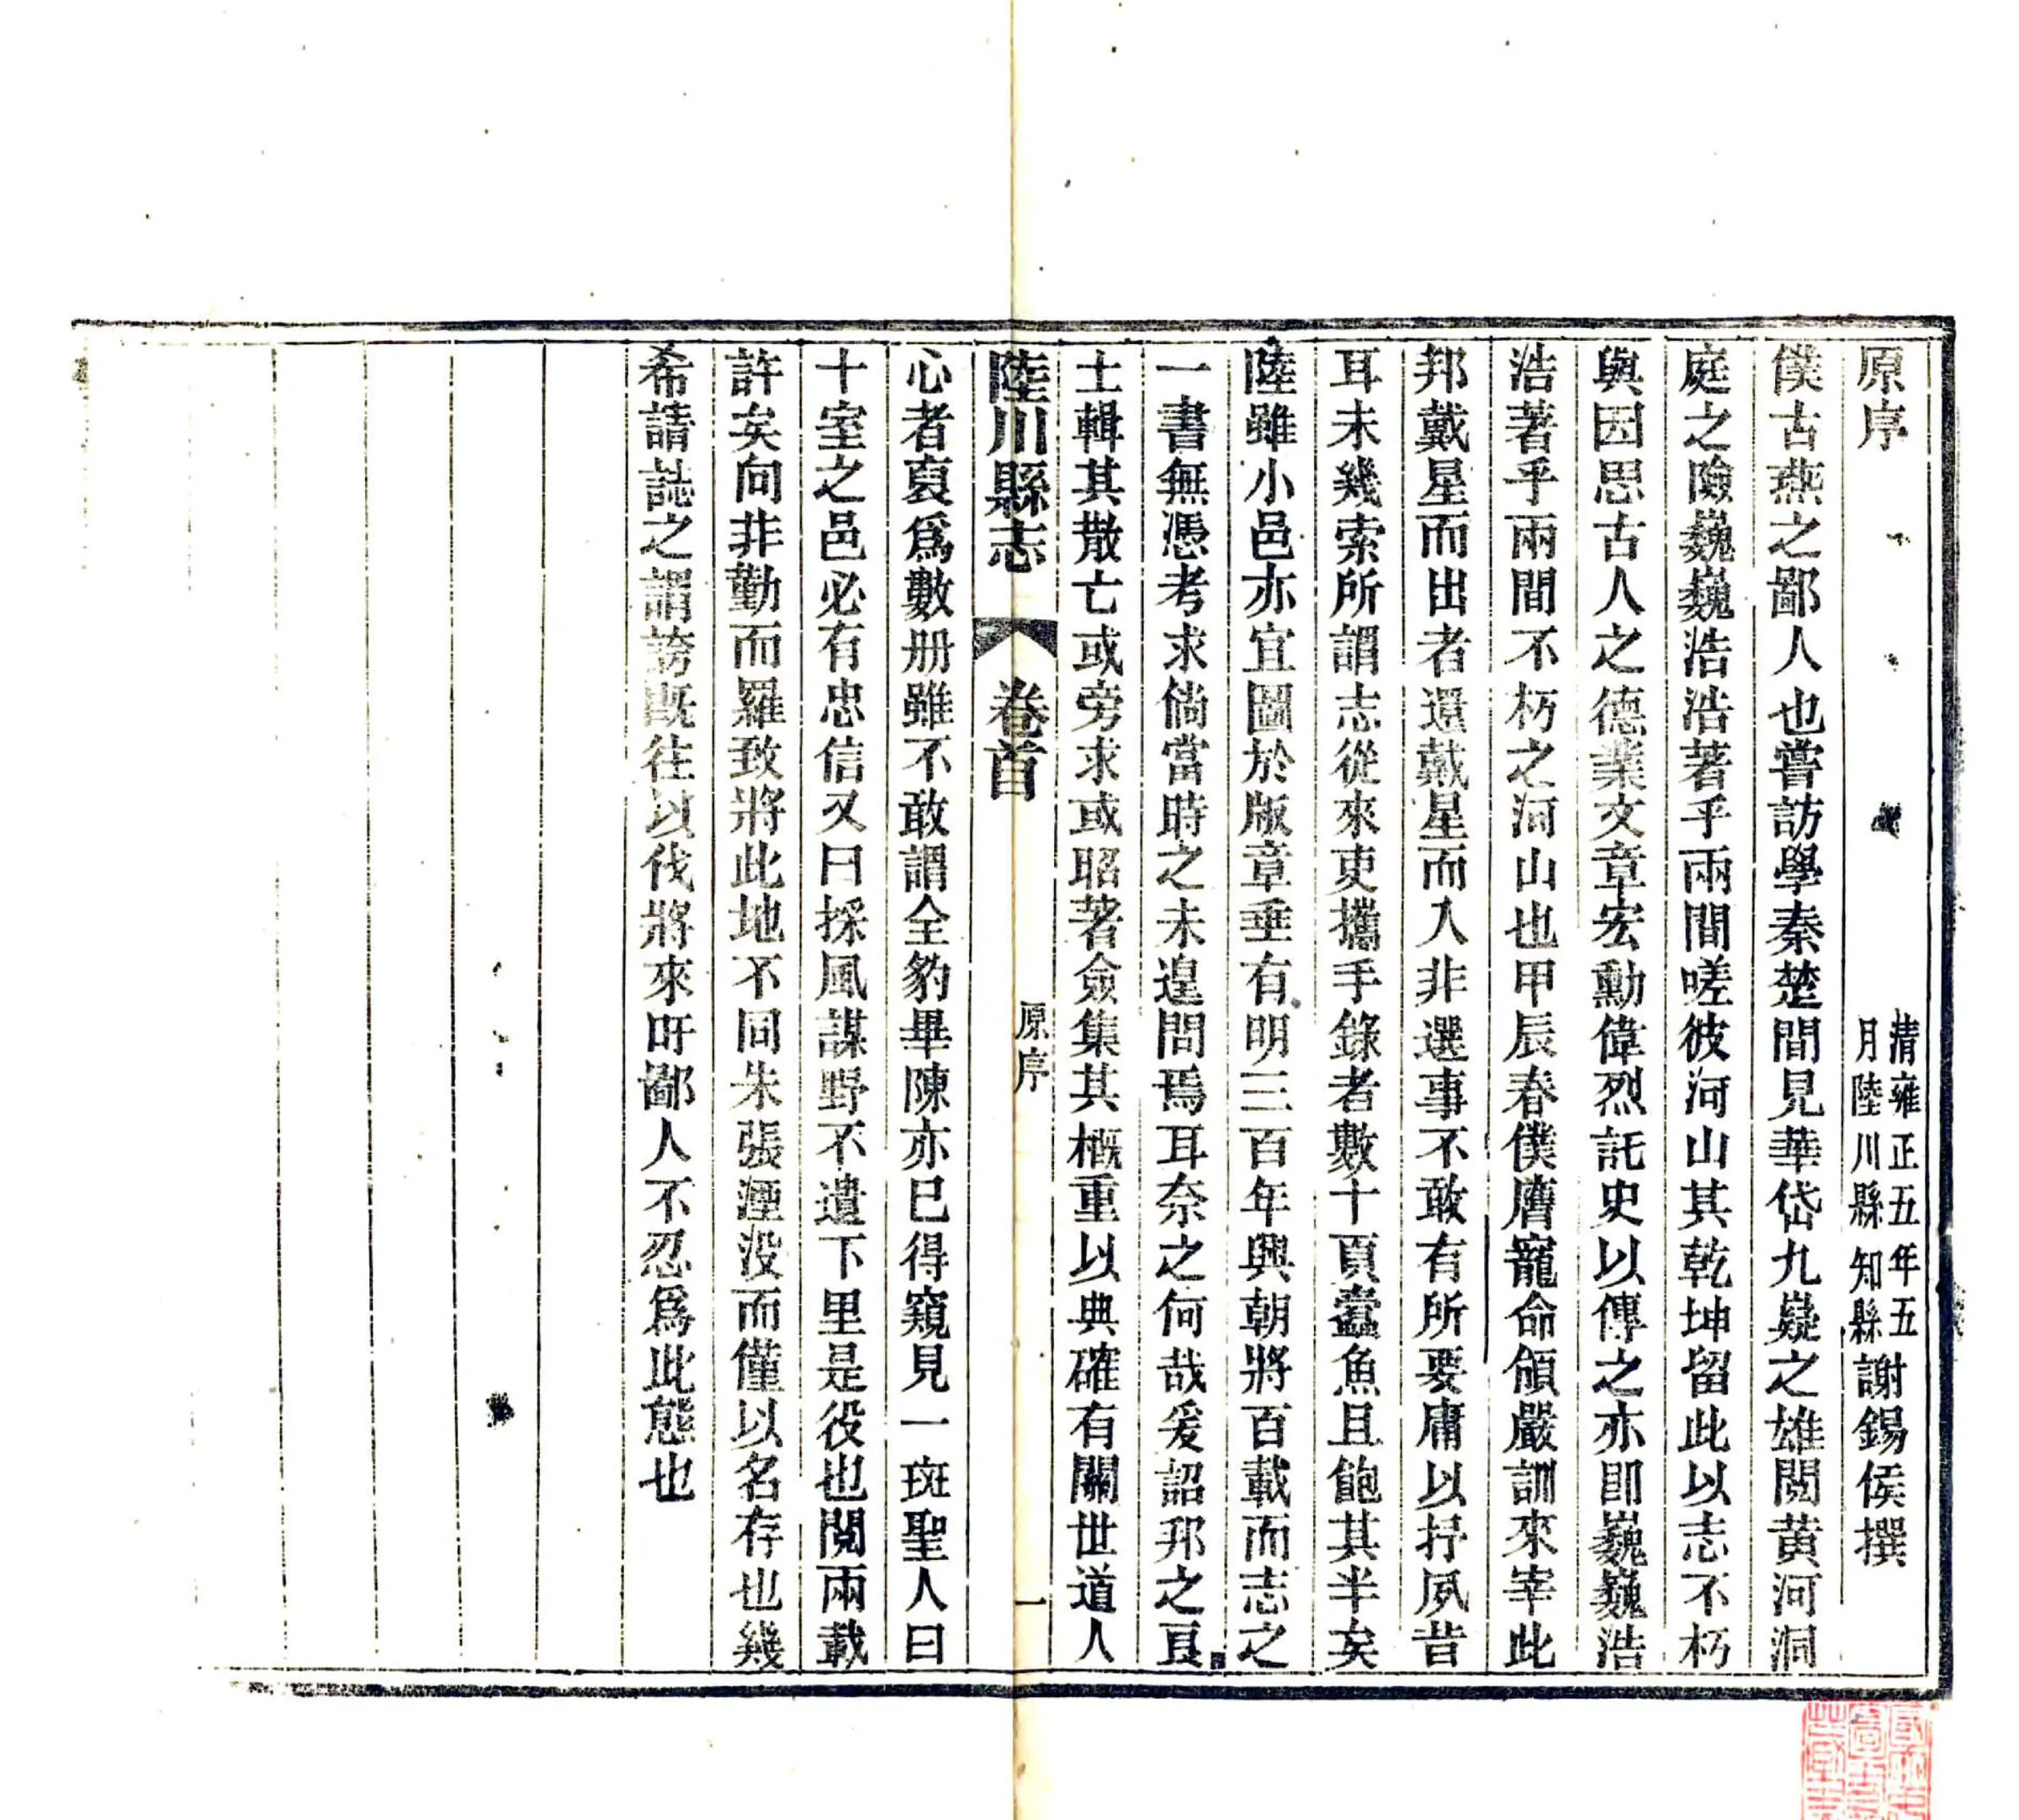 原序
清雍正五年五
月陸川縣知縣
謝錫侯撰
僕古燕之鄙人也嘗訪學秦楚間見華岱九嶷之雄閱黃河洞
庭之險巍巍浩浩著乎兩間嗟彼河山其乾坤留此以志不朽
與因思古人之德業文章宏勳偉烈託史以傳之亦卽巍巍浩
浩著乎兩間不朽之河山也甲辰春僕膺寵命頒嚴訓來宰此
邦戴星而出者還戴星而入非選事不敢有所要庸以抒夙昔
耳未幾索所謂志從來吏攜手錄者數十頁蠹魚且飽其半矣
陸雖小邑亦宜圖於版章垂有明三百年興朝將百載而志之
一書無憑考求倘當時之未遑問焉耳奈之何哉爰詔邦之良
士輯其散亡或旁求或昭著僉集其槪重以典確有關世道人
陸川縣志
卷首
原序
一
心者裒爲數册雖不敢謂全豹畢陳亦已得窺見一斑聖人曰
十室之邑必有忠信又曰採風謀野不遺下里是役也閱兩載
許矣向非勤而羅致將此地不同朱張湮没而僅以名存也幾
希請誌之謂誇旣往以伐將來吁鄙人不忍爲此態也